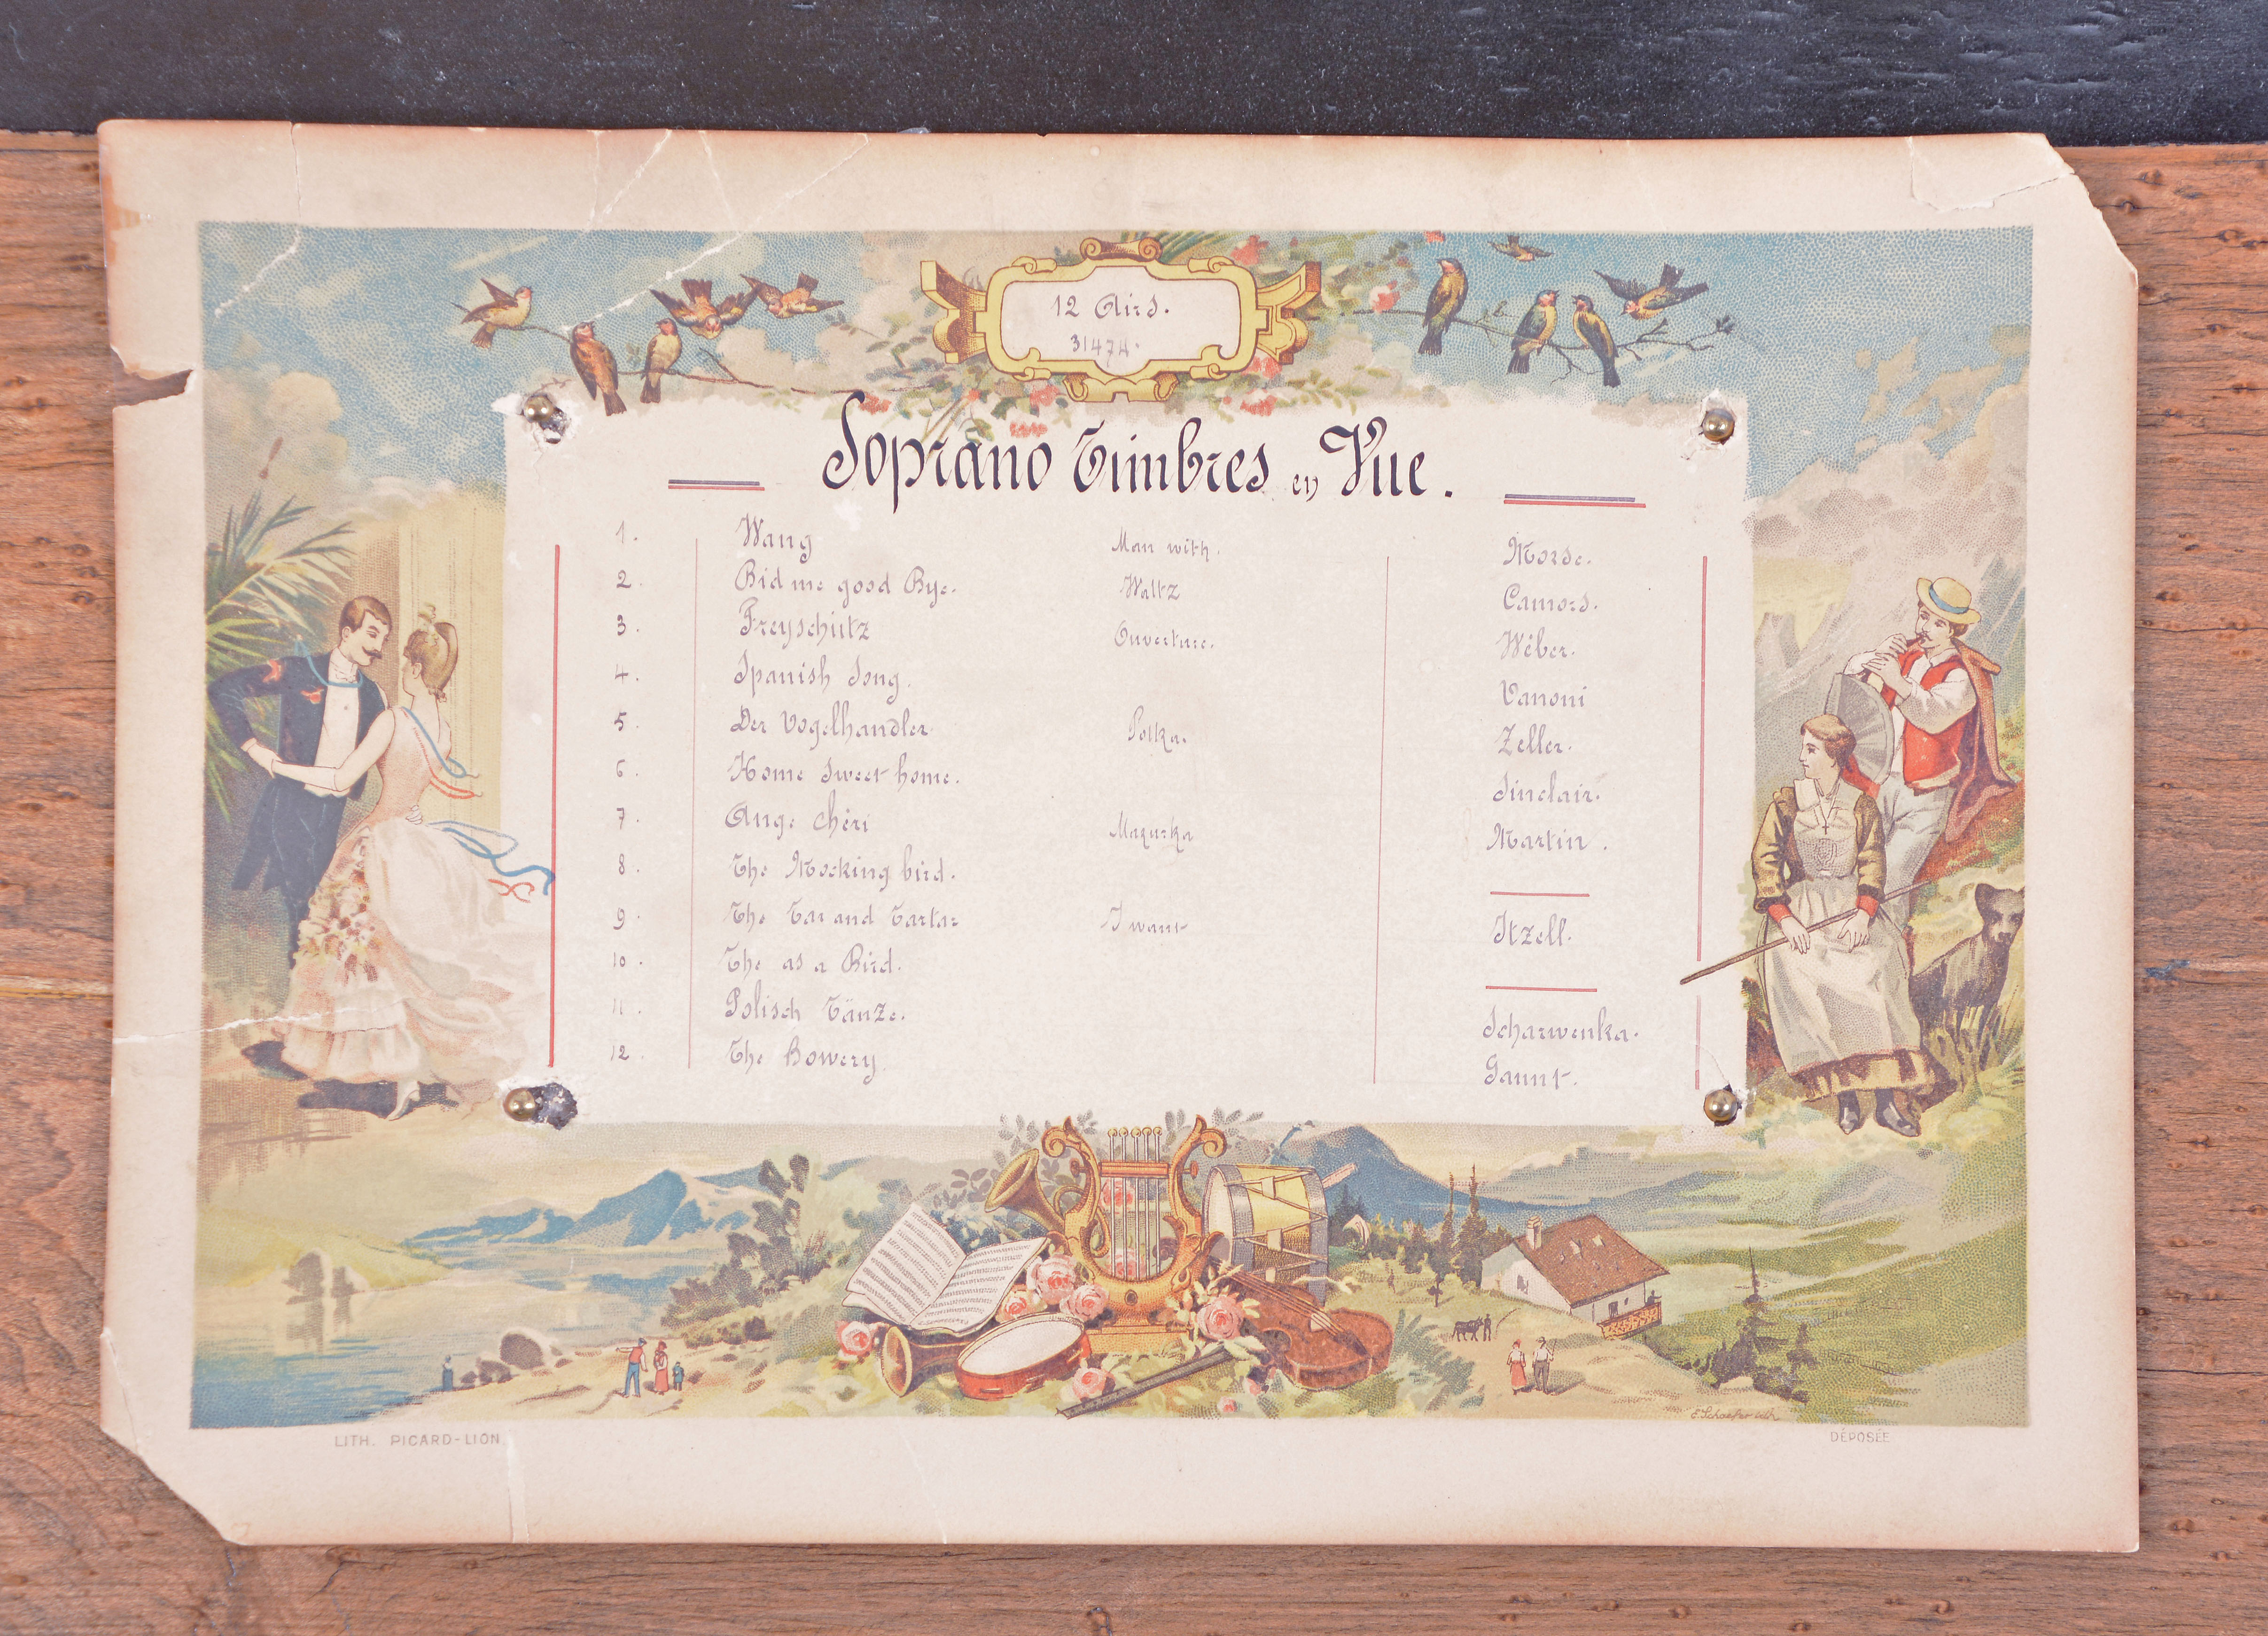 12 Airs.
31474.
Soprano Timbres en Vue.
1. Wang Man with. Morse.
2. Bid me good Bye. Waltz Camors.
3. Freyschütz Ouverture. Wéber.
4. Spanish Song. Vanoni
5. Der Vogelhandler. Polka. Zeller.
6. Home sweet home. Sinclair.
7. Ange chéri Mazurka Martin.
8. The Mocking bird.
9. The Tar and Tartar I want Itzell.
10. The as a Bird.
11. Polisch Tänze. Scharwenka.
12. The Bowery. Gaunt.
LITH. PICARD-LION
E. Schaefer lith
DÉPOSÉE